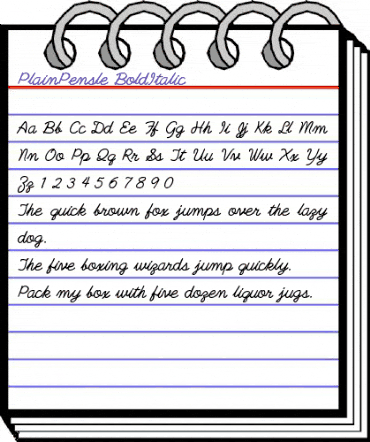 PlainPensle BoldItalic
Aa Bb Cc Dd Ee Ff Gg Hh Ii Jj Kk Ll Mm
Nn Oo Pp Qq Rr Ss Tt Uu Vv Ww Xx Yy
Zz 1 2 3 4 5 6 7 8 9 0
The quick brown fox jumps over the lazy
dog.
The five boxing wizards jump quickly.
Pack my box with five dozen liquor jugs.